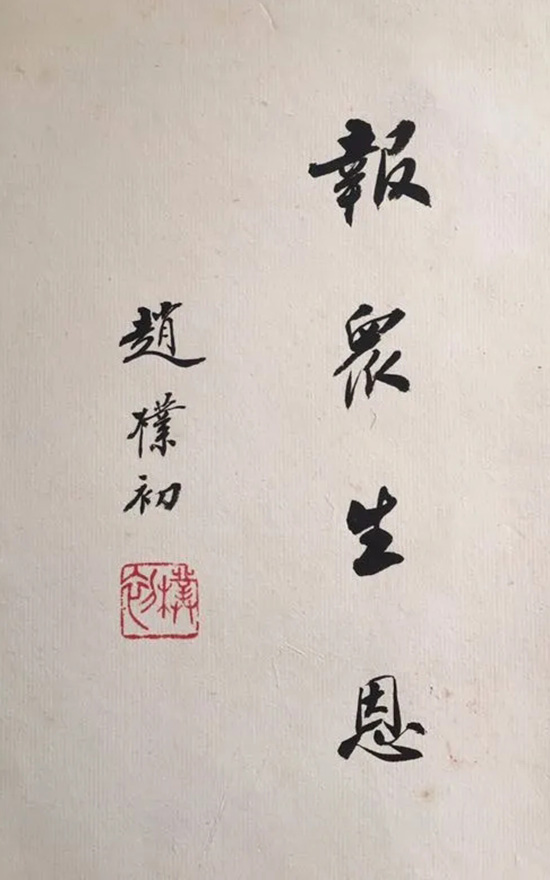 報眾生恩
趙樸初
樸初